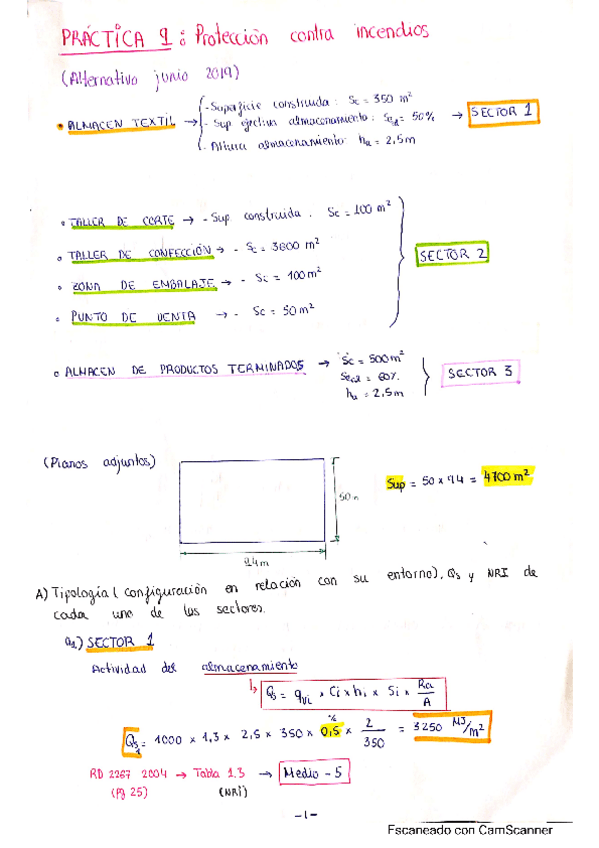 PRÁCTICA 1: Protección contra incendios
(Alternativo junio 2019)
• ALMACEN TEXTIL → - Superficie construida: Sc = 350 m²
- Sup efectiva almacenamiento: = 50% → SECTOR 1
- Altura almacenamiento: ha = 2,5m
• TALLER DE CORTE → - Sup construida: Sc = 100 m²
• TALLER DE CONFECCIÓN → - Sc = 3600 m²
SECTOR 2
• ZONA DE EMBALAJE → - Sc = 100 m²
• PUNTO DE VENTA → - Sc = 50 m²
• ALMACEN DE PRODUCTOS TERMINADOS → Sc = 500 m²
= 60%
SECTOR 3
ha = 2,5m
(Planos adjuntos)
Sup = 50 x 94 = 4700 m²
50 m
94 m
A) Tipología (configuración en relación con su entorno), Qs y NRI de
cada uno de los sectores.
a1) SECTOR 1
Actividad del almacenamiento
Qs = qvi × Ci × hi × Si × Ra/A
Qs1 = 1000 × 1,3 × 2,5 × 350 × 0,5 × 2/350 = 3250 MJ/m²
RD 2267 2004 → Tabla 1.3 → Medio - 5
(Pg 25) (NRI)
-1-
Escaneado con CamScanner